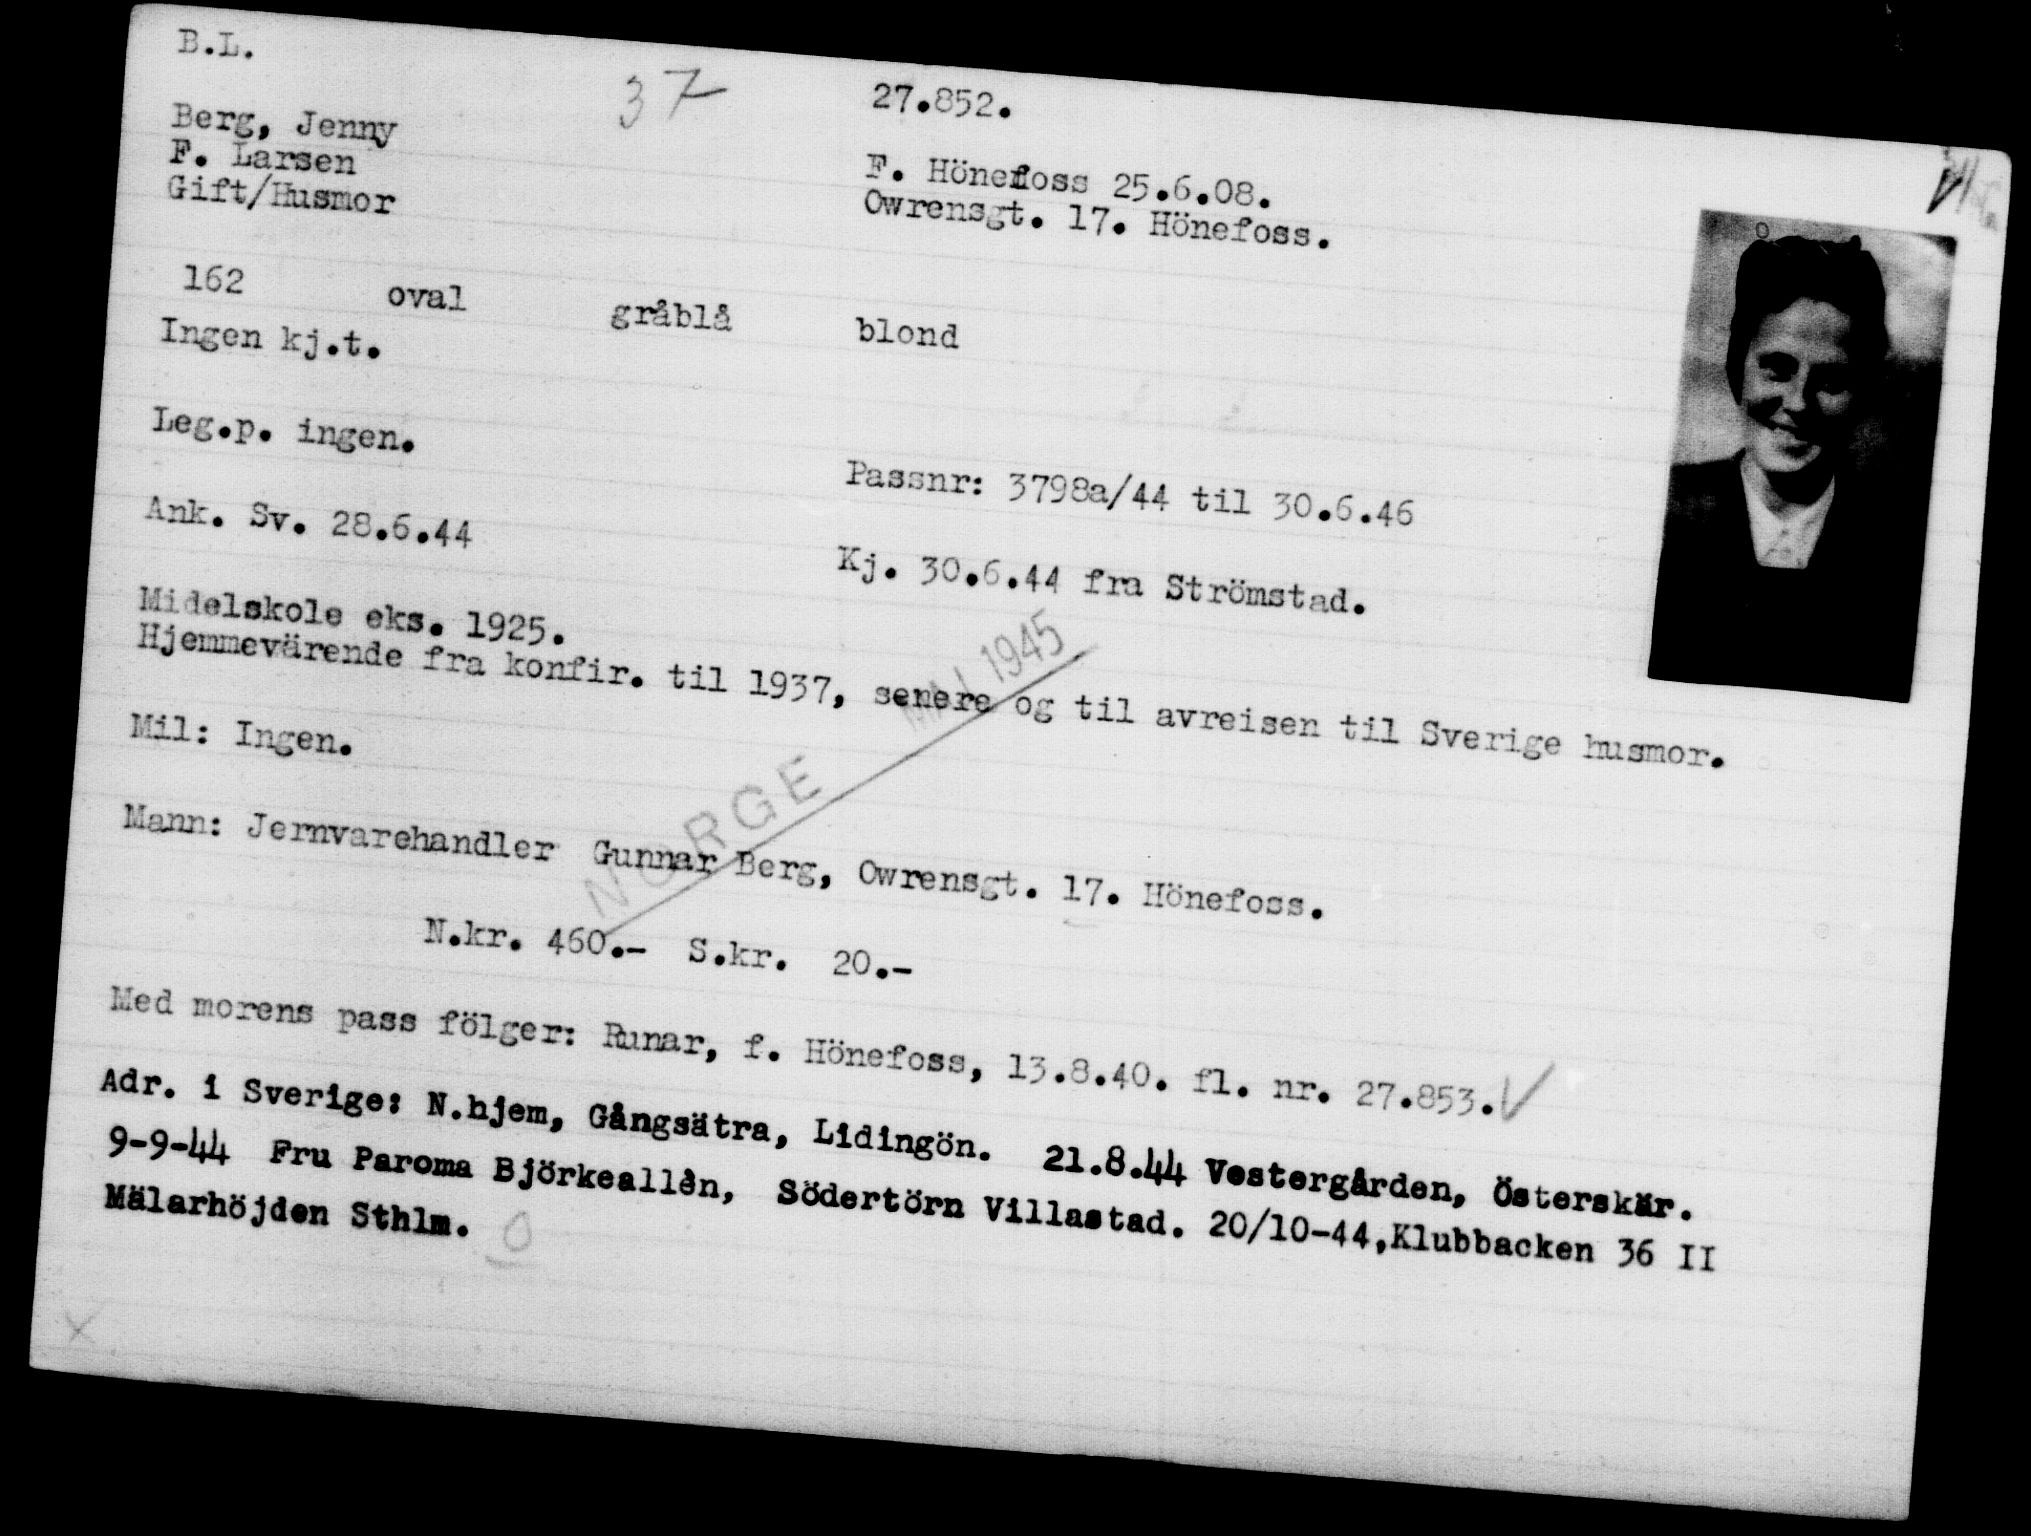 B.L.
37
27.852.
Berg, Jenny
F. Larsen
Gift/Husmor
F. Hönefoss 25.6.08.
Owrensgt. 17. Hönefoss.
162 oval gråblå blond
Ingen kj.t.
Leg.p. ingen.
Passnr: 3798a/44 til 30.6.46
Ank. Sv. 28.6.44
Kj. 30.6.44 fra Strömstad.
Midelskole eks. 1925.
Hjemmevärende fra konfir. til 1937, senere og til avreisen til Sverige husmor.
NORGE MAI 1945
Mil: Ingen.
Mann: Jernvarehandler Gunnar Berg, Owrensgt. 17. Hönefoss.
N.kr. 460.- S.kr. 20.-
Med morens pass fölger: Runar, f. Hönefoss, 13.8.40. fl. nr. 27.853. V
Adr. i Sverige: N.hjem, Gångsätra, Lidingön. 21.8.44 Vestergården, Österskär.
9-9-44 Fru Paroma Björkeallèn, Södertörn Villastad. 20/10-44,Klubbacken 36 II
Mälarhöjden Sthlm. O
X